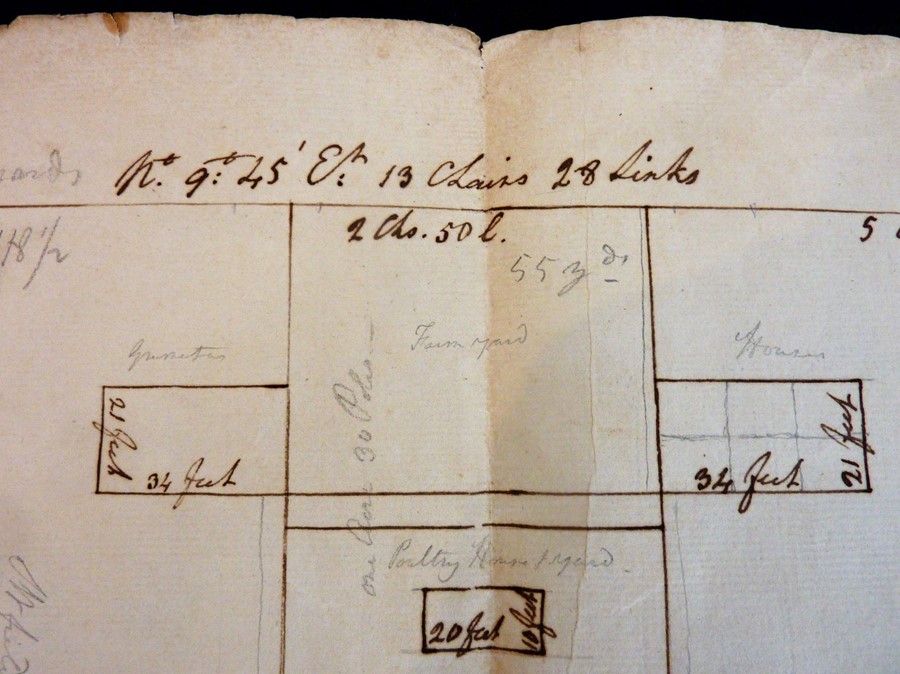 No. 9:o 45' Et: 13 Chains 28 Links
2 Chs. 50 l.
5
55 yds
Farm yard
Houses
one Acre 30 Poles
21 feet
34 feet
34 feet
21 feet
Poultry House & yard
20 feet
10 feet